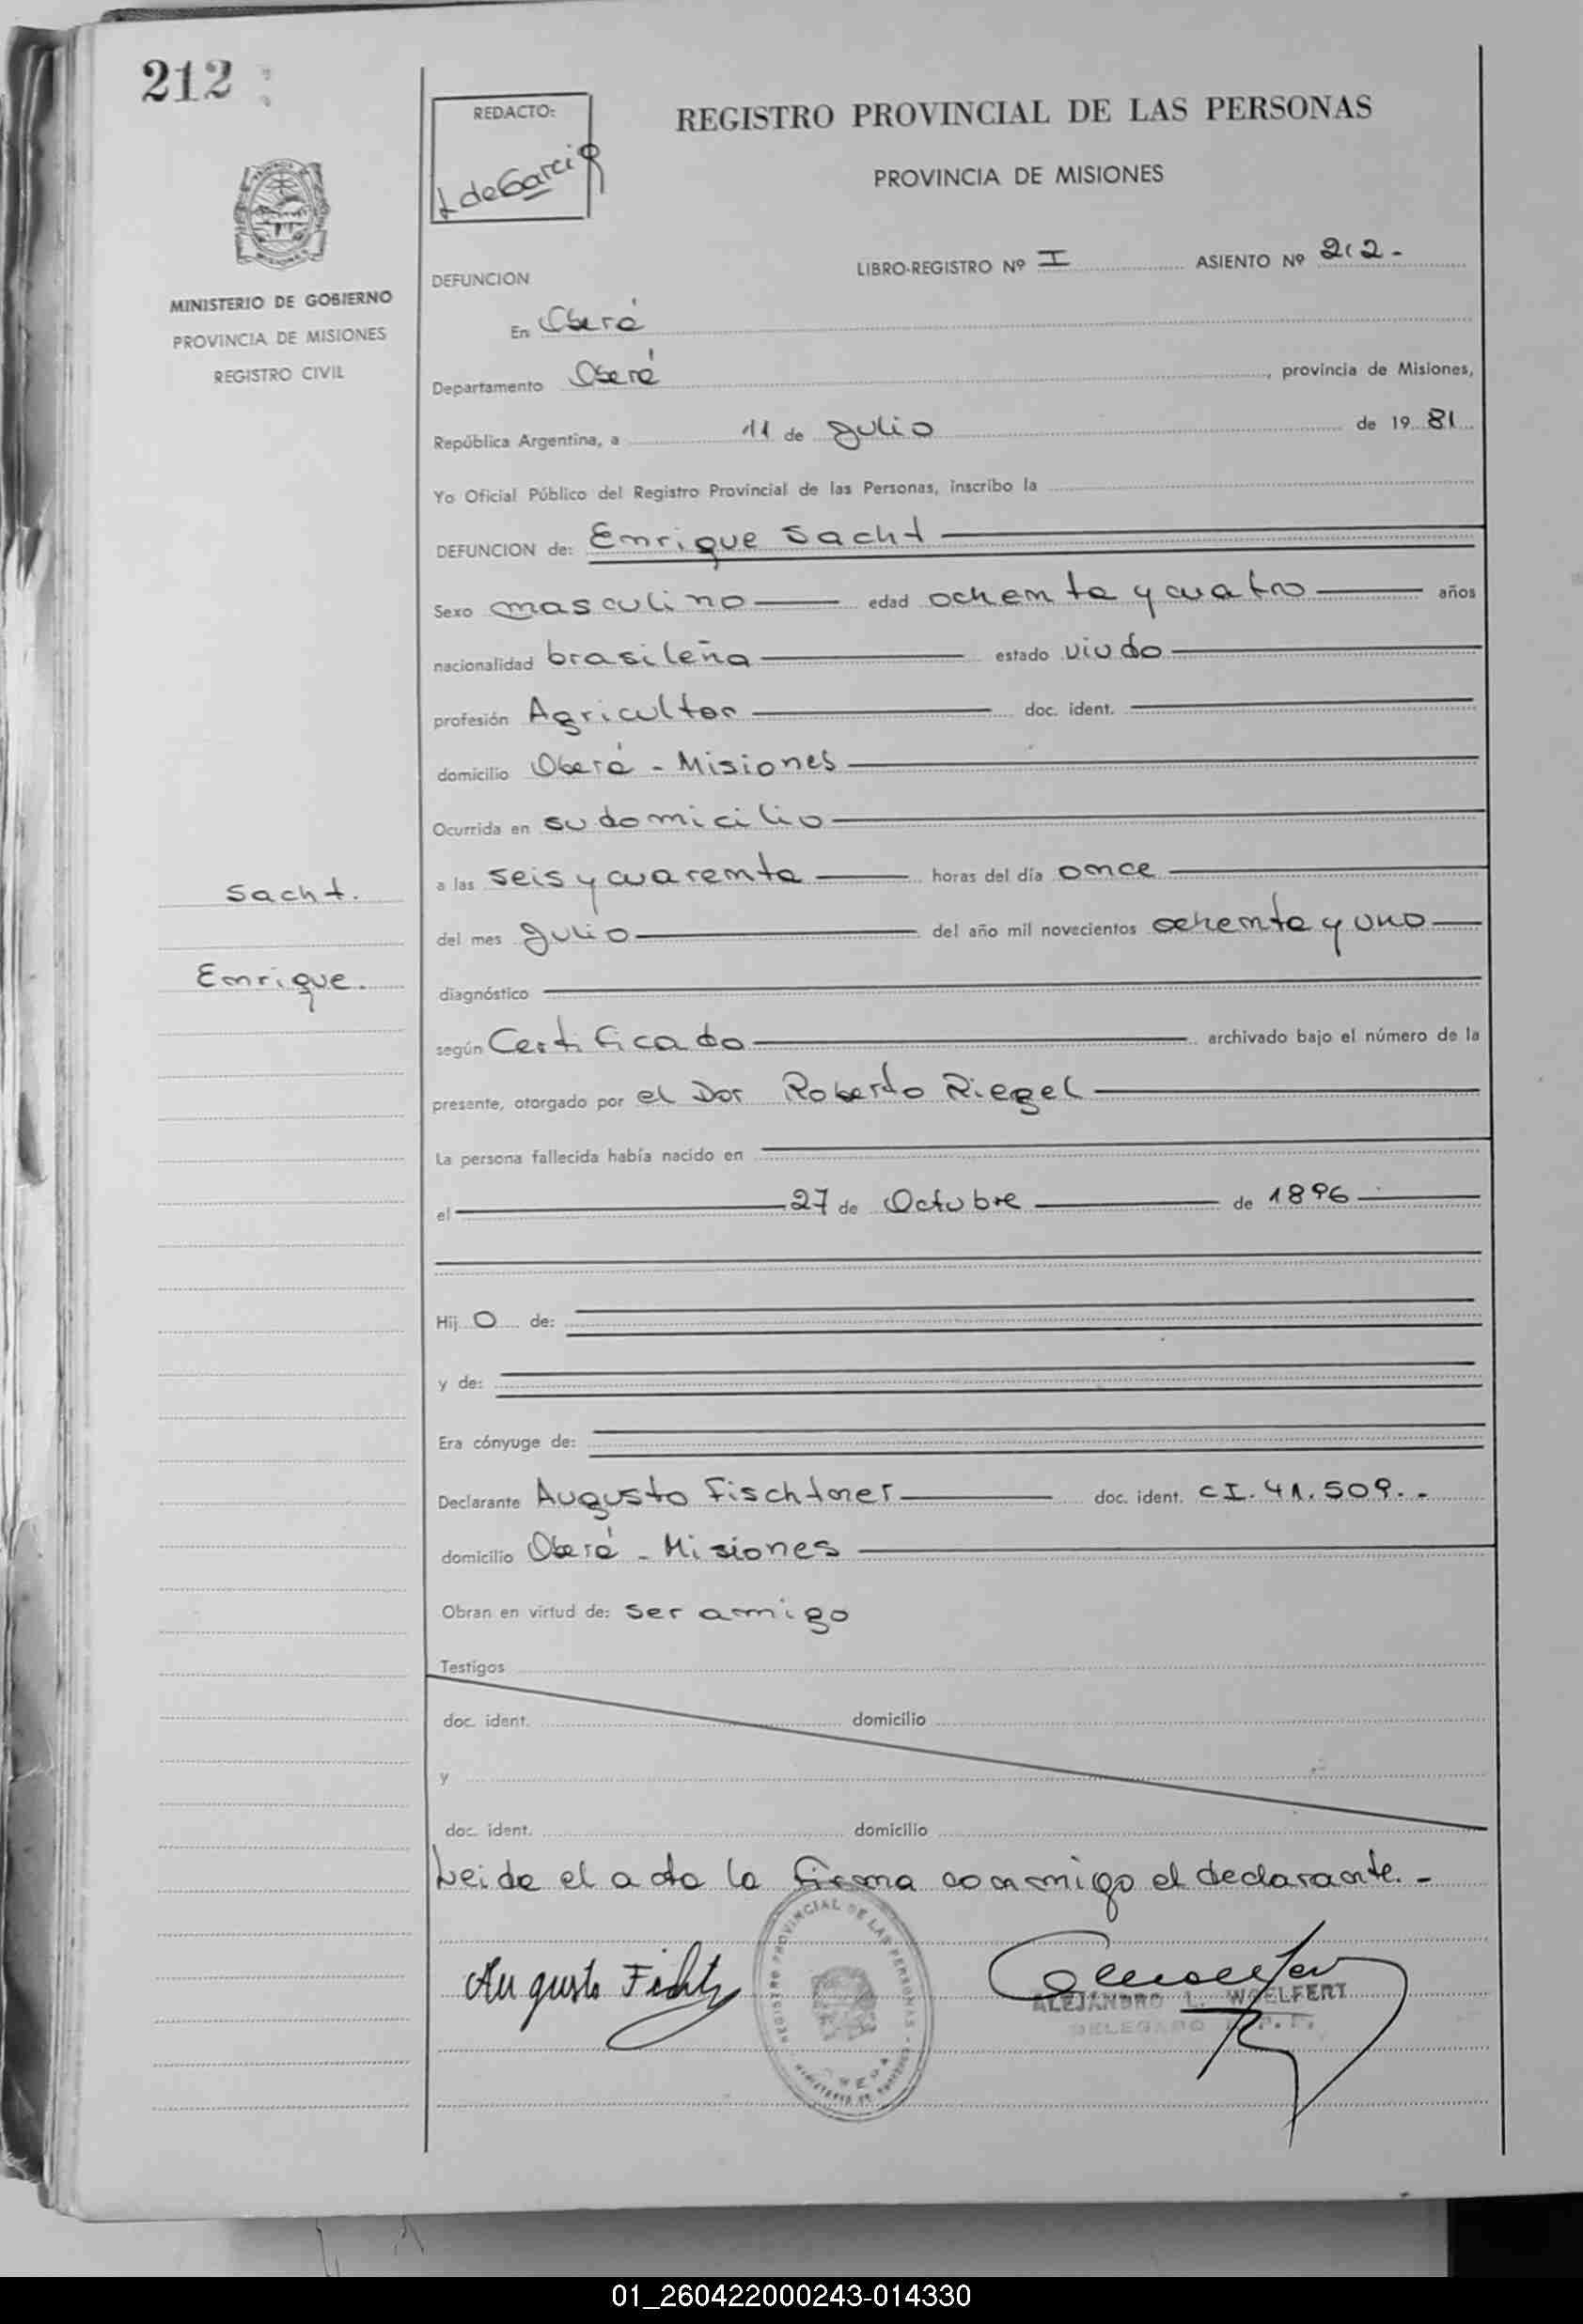 212
REDACTO:
L de Garcia
REGISTRO PROVINCIAL DE LAS PERSONAS
PROVINCIA DE MISIONES
MINISTERIO DE GOBIERNO
PROVINCIA DE MISIONES
REGISTRO CIVIL
LIBRO-REGISTRO Nº I ASIENTO Nº 212-
DEFUNCION
En Oberá
Departamento Oberá, provincia de Misiones,
República Argentina, a 11 de Julio de 19 81
Yo Oficial Público del Registro Provincial de las Personas, inscribo la
DEFUNCION de: Enrique Sacht
Sexo masculino edad ochenta y cuatro años
nacionalidad brasileña estado viudo
profesión Agricultor doc. ident.
domicilio Oberá - Misiones
Ocurrida en su domicilio
Sacht.
Enrique.
a las seis y cuarenta horas del día once
del mes Julio del año mil novecientos ochenta y uno
diagnóstico
según Certificado archivado bajo el número de la
presente, otorgado por el Dor Roberto Riegel
La persona fallecida había nacido en
el 27 de Octubre de 1896
Hij o de:
y de:
Era cónyuge de:
Declarante Augusto Fischtner doc. ident. CI. 41.509.-
domicilio Oberá - Misiones
Obran en virtud de: ser amigo
Testigos
doc. ident. domicilio
y
doc. ident. domicilio
Leida el acta la firma conmigo el declarante.-
Augusto
REGISTRO PROVINCIAL DE LAS PERSONAS
ALEJANDRO L. WOELFERT
DELEGADO
01_260422000243-014330